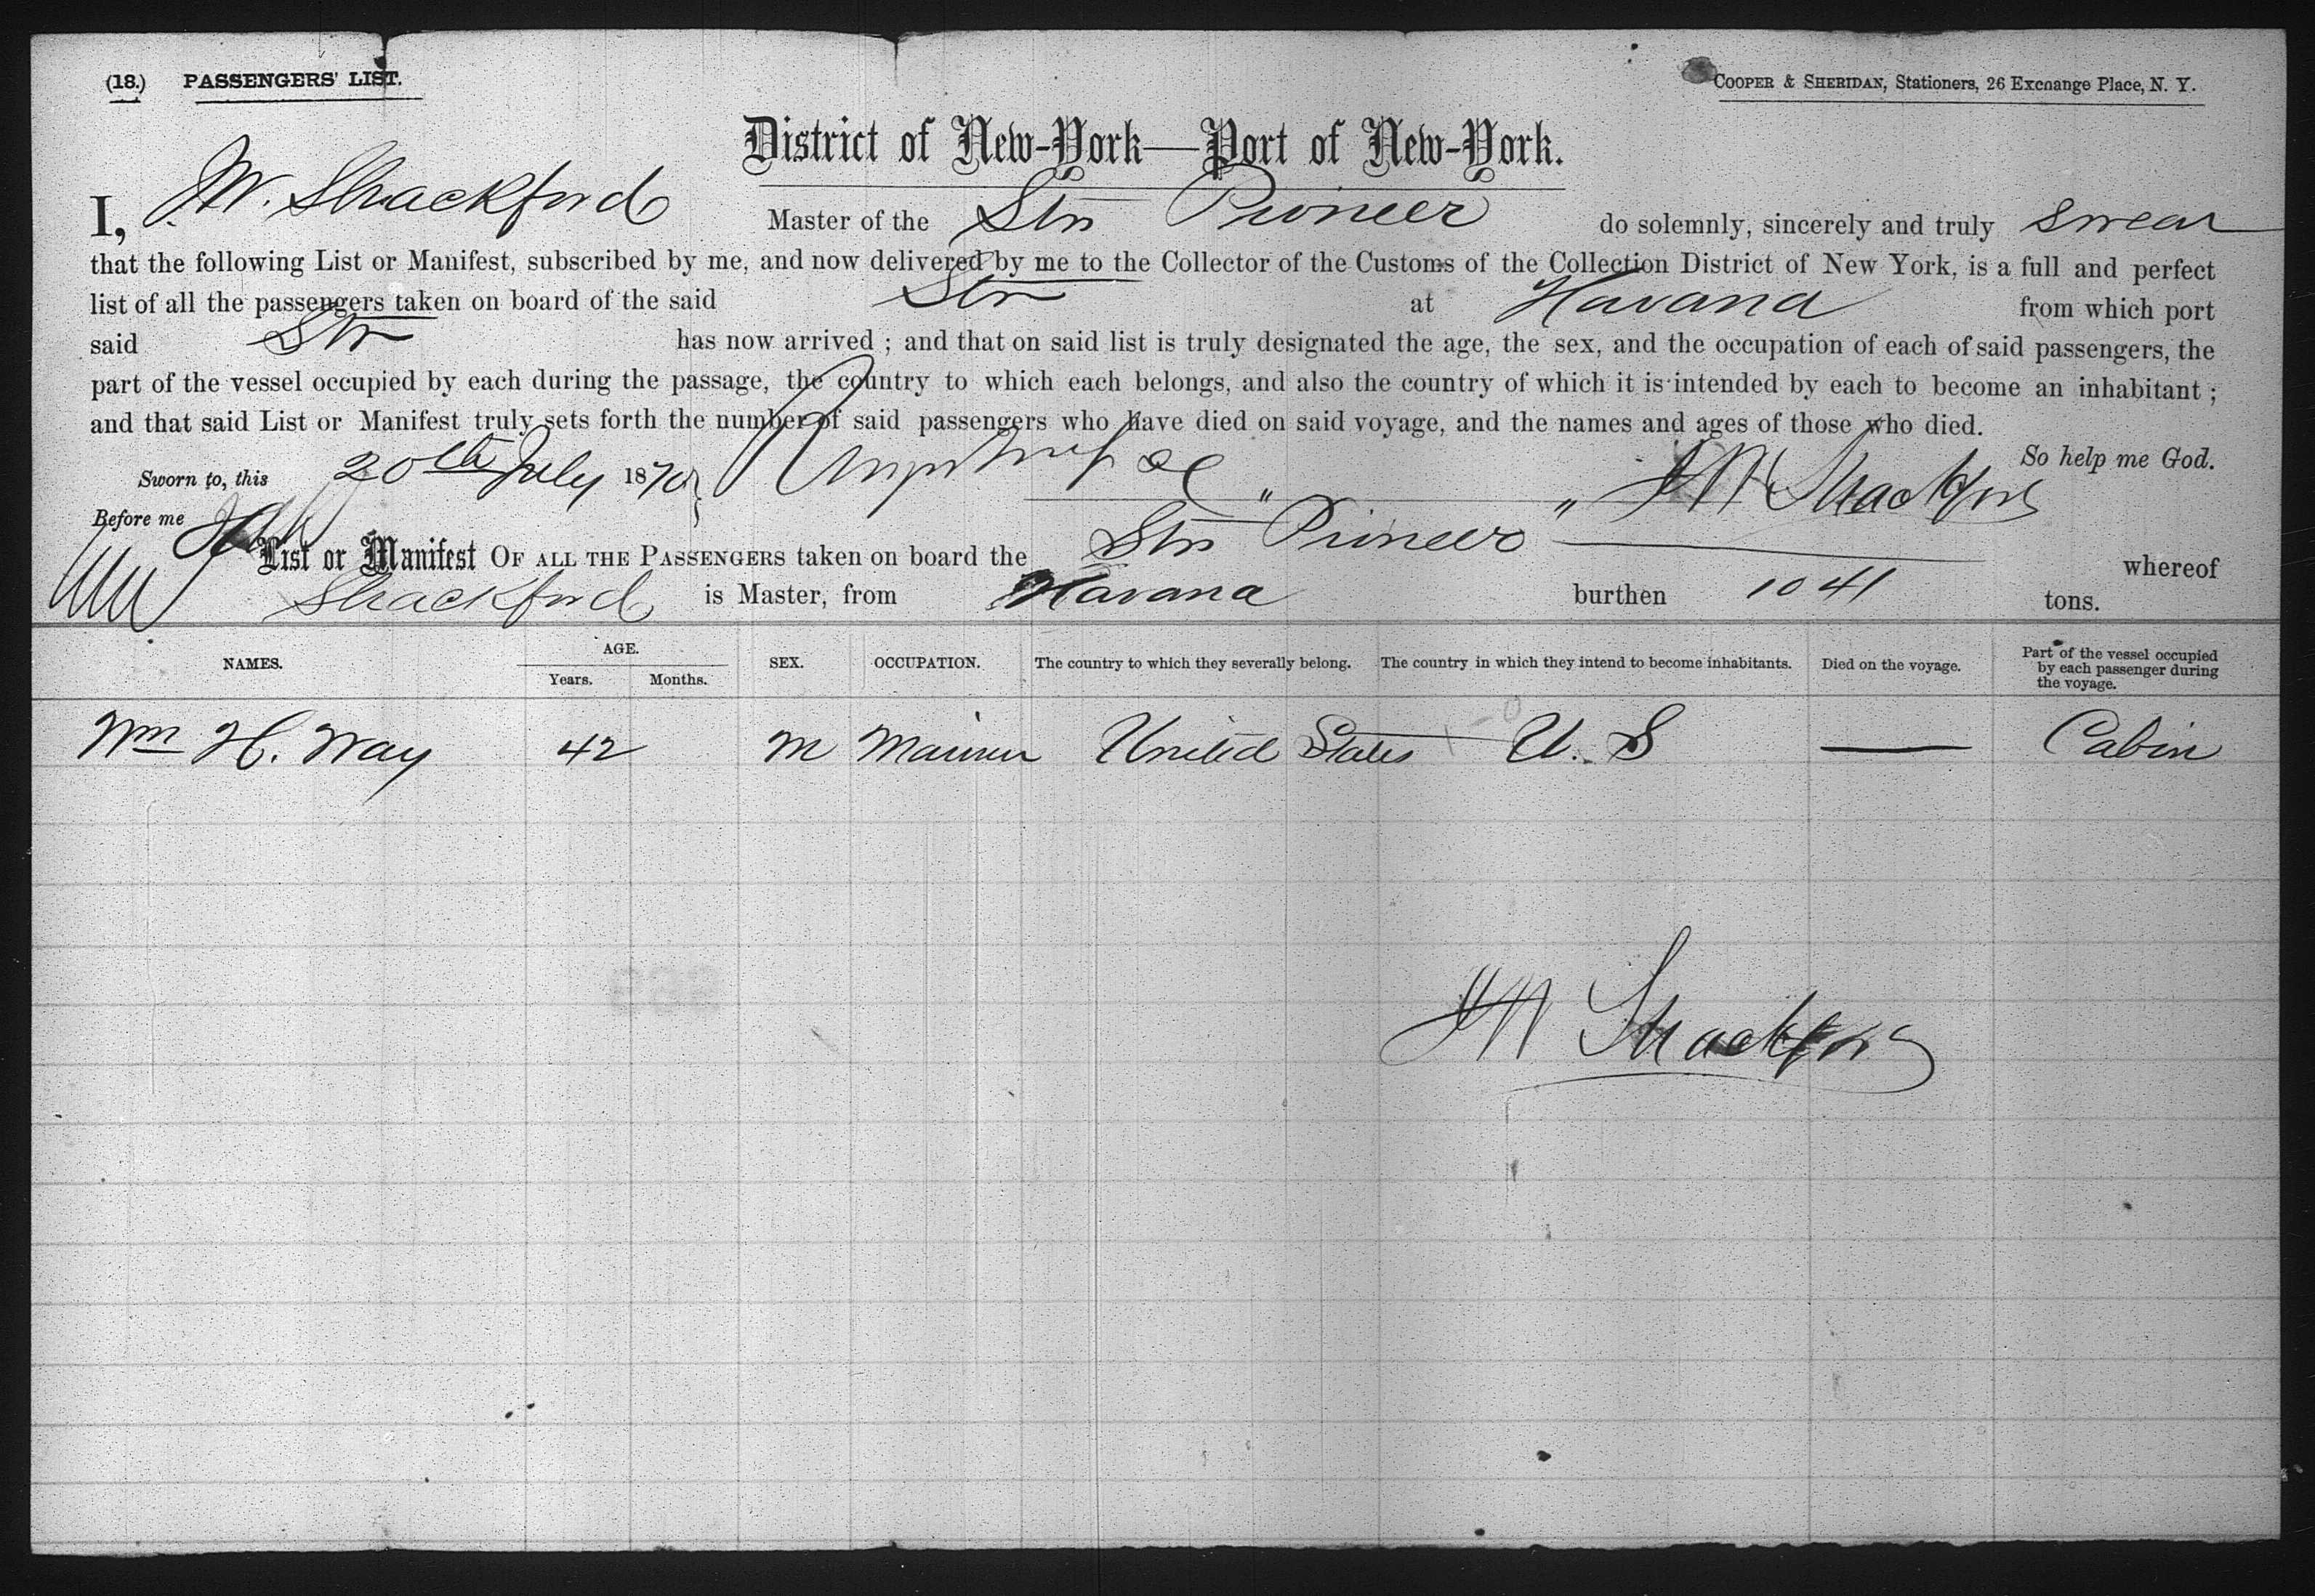 (18.) PASSENGERS' LIST.
COOPER & SHERIDAN, Stationers, 26 Exchange Place, N. Y.
District of New-York—Port of New-York.
I, J.W. Shackford Master of the Str Pioneer do solemnly, sincerely and truly swear
that the following List or Manifest, subscribed by me, and now delivered by me to the Collector of the Customs of the Collection District of New York, is a full and perfect
list of all the passengers taken on board of the said Str at Havana from which port
said Str has now arrived ; and that on said list is truly designated the age, the sex, and the occupation of each of said passengers, the
part of the vessel occupied by each during the passage, the country to which each belongs, and also the country of which it is intended by each to become an inhabitant ;
and that said List or Manifest truly sets forth the number of said passengers who have died on said voyage, and the names and ages of those who died.
So help me God.
Sworn to, this 20th July 1870 JW Shackford
Before me
List or Manifest OF ALL THE PASSENGERS taken on board the Str "Pioneer" whereof
Shackford is Master, from Havana burthen 1041 tons.
NAMES. AGE. Years. Months. SEX. OCCUPATION. The country to which they severally belong. The country in which they intend to become inhabitants. Died on the voyage. Part of the vessel occupied by each passenger during the voyage.
Wm H. Way 42 M Mariner United States U. S — Cabin
JW Shackford